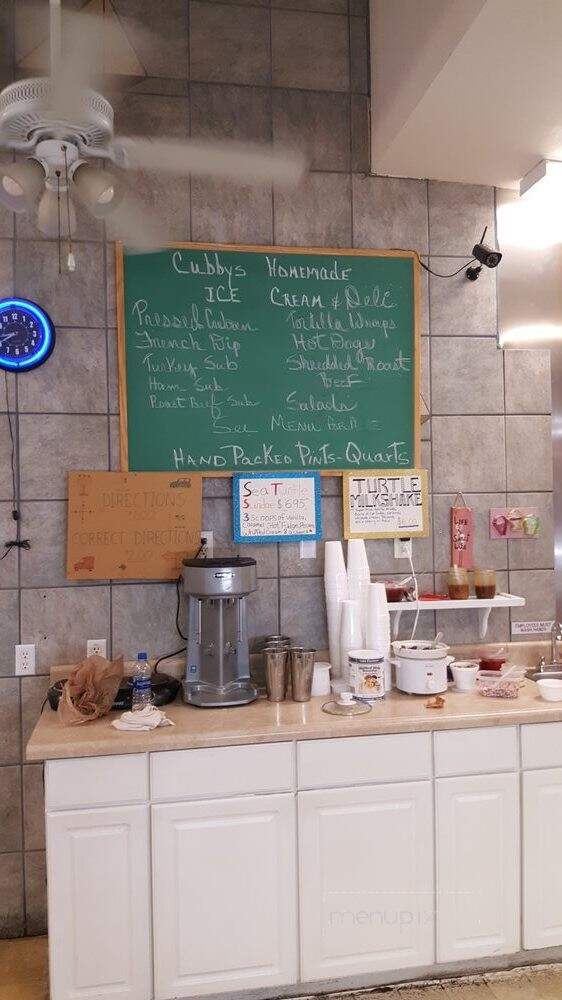 Cubbys Homemade
ICE Cream & Deli
Pressed Cuban
French Dip
Turkey Sub
Ham Sub
Roast Beef Sub
Tortilla Wraps
Hot Dogs
Shredded Roast
Beef
Salads
See Menu
Hand Packed Pints-Quarts
DIRECTIONS
CORRECT DIRECTIONS
Sea Turtle
Sundae $6.95
3 Scoops of Vanilla,
Caramel, Hot Fudge, Pecans
TURTLE
MILKSHAKE
EMPLOYEES MUST
menupix